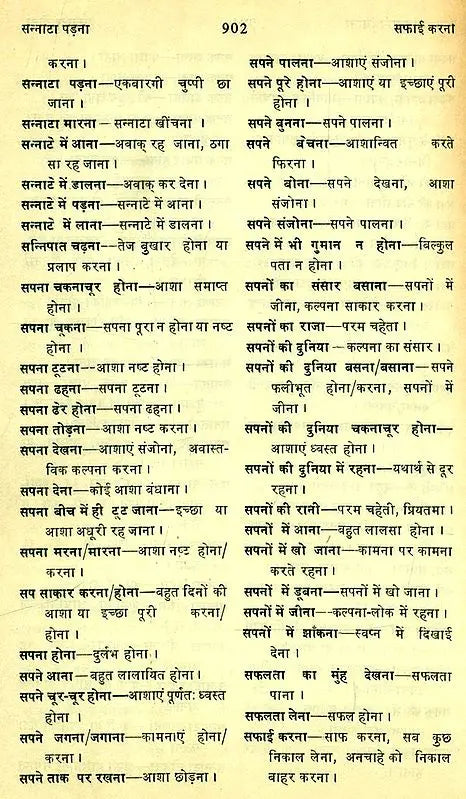 सन्नाटा पड़ना 902 सफाई करना
करना ।
सन्नाटा पड़ना—एकबारगी चुप्पी छा
जाना ।
सन्नाटा मारना—सन्नाटा खींचना ।
सन्नाटे में आना—अवाक् रह जाना, ठगा
सा रह जाना ।
सन्नाटे में डालना—अवाक् कर देना ।
सन्नाटे में पड़ना—सन्नाटे में आना ।
सन्नाटे में लाना—सन्नाटे में डालना ।
सन्निपात चढ़ना—तेज बुखार होना या
प्रलाप करना ।
सपना चकनाचूर होना—आशा समाप्त
होना ।
सपना चूकना—सपना पूरा न होना या नष्ट
होना ।
सपना टूटना--आशा नष्ट होना ।
सपना ढहना—सपना टूटना ।
सपना ढेर होना—सपना ढहना ।
सपना तोड़ना—आशा नष्ट करना ।
सपना देखना—आशाएं संजोना, अवास्त-
विक कल्पना करना ।
सपना देना—कोई आशा बंधाना ।
सपना बीच में ही टूट जाना—इच्छा या
आशा अधूरी रह जाना ।
सपना मरना/मारना—आशा नष्ट होना/
करना ।
सप साकार करना/होना—बहुत दिनों की
आशा या इच्छा पूरी करना/
होना ।
सपना होना—दुर्लभ होना ।
सपने आना—बहुत लालायित होना ।
सपने चूर-चूर होना—आशाएं पूर्णतः ध्वस्त
होना ।
सपने जगना/जगाना—कामनाएं होना/
करना ।
सपने ताक पर रखना—आशा छोड़ना ।
सपने पालना—आशाएं संजोना ।
सपने पूरे होना—आशाएं या इच्छाएं पूरी
होना ।
सपने बुनना—सपने पालना ।
सपने बेचना—आशान्वित करते
फिरना ।
सपने बोना—सपने देखना, आशा
संजोना ।
सपने संजोना—सपने पालना ।
सपने में भी गुमान न होना—बिल्कुल
पता न होना ।
सपनों का संसार बसाना—सपनों में
जीना, कल्पना साकार करना ।
सपनों का राजा—परम चहेता ।
सपनों की दुनिया—कल्पना का संसार ।
सपनों की दुनिया बसना/बसाना—सपने
फलीभूत होना/करना, सपनों में
जीना ।
सपनों की दुनिया चकनाचूर होना—
आशाएं ध्वस्त होना ।
सपनों की दुनिया में रहना—यथार्थ से दूर
रहना ।
सपनों की रानी—परम चहेती, प्रियतमा ।
सपनों में आना—बहुत लालसा होना ।
सपनों में खो जाना—कामना पर कामना
करते रहना ।
सपनों में डूबना—सपनों में खो जाना ।
सपनों में जीना—कल्पना-लोक में रहना ।
सपनों में झाँकना—स्वप्न में दिखाई
देना ।
सफलता का मुंह देखना—सफलता
पाना ।
सफलता लेना—सफल होना ।
सफाई करना—साफ करना, सब कुछ
निकाल लेना, अनचाहे को निकाल
बाहर करना ।